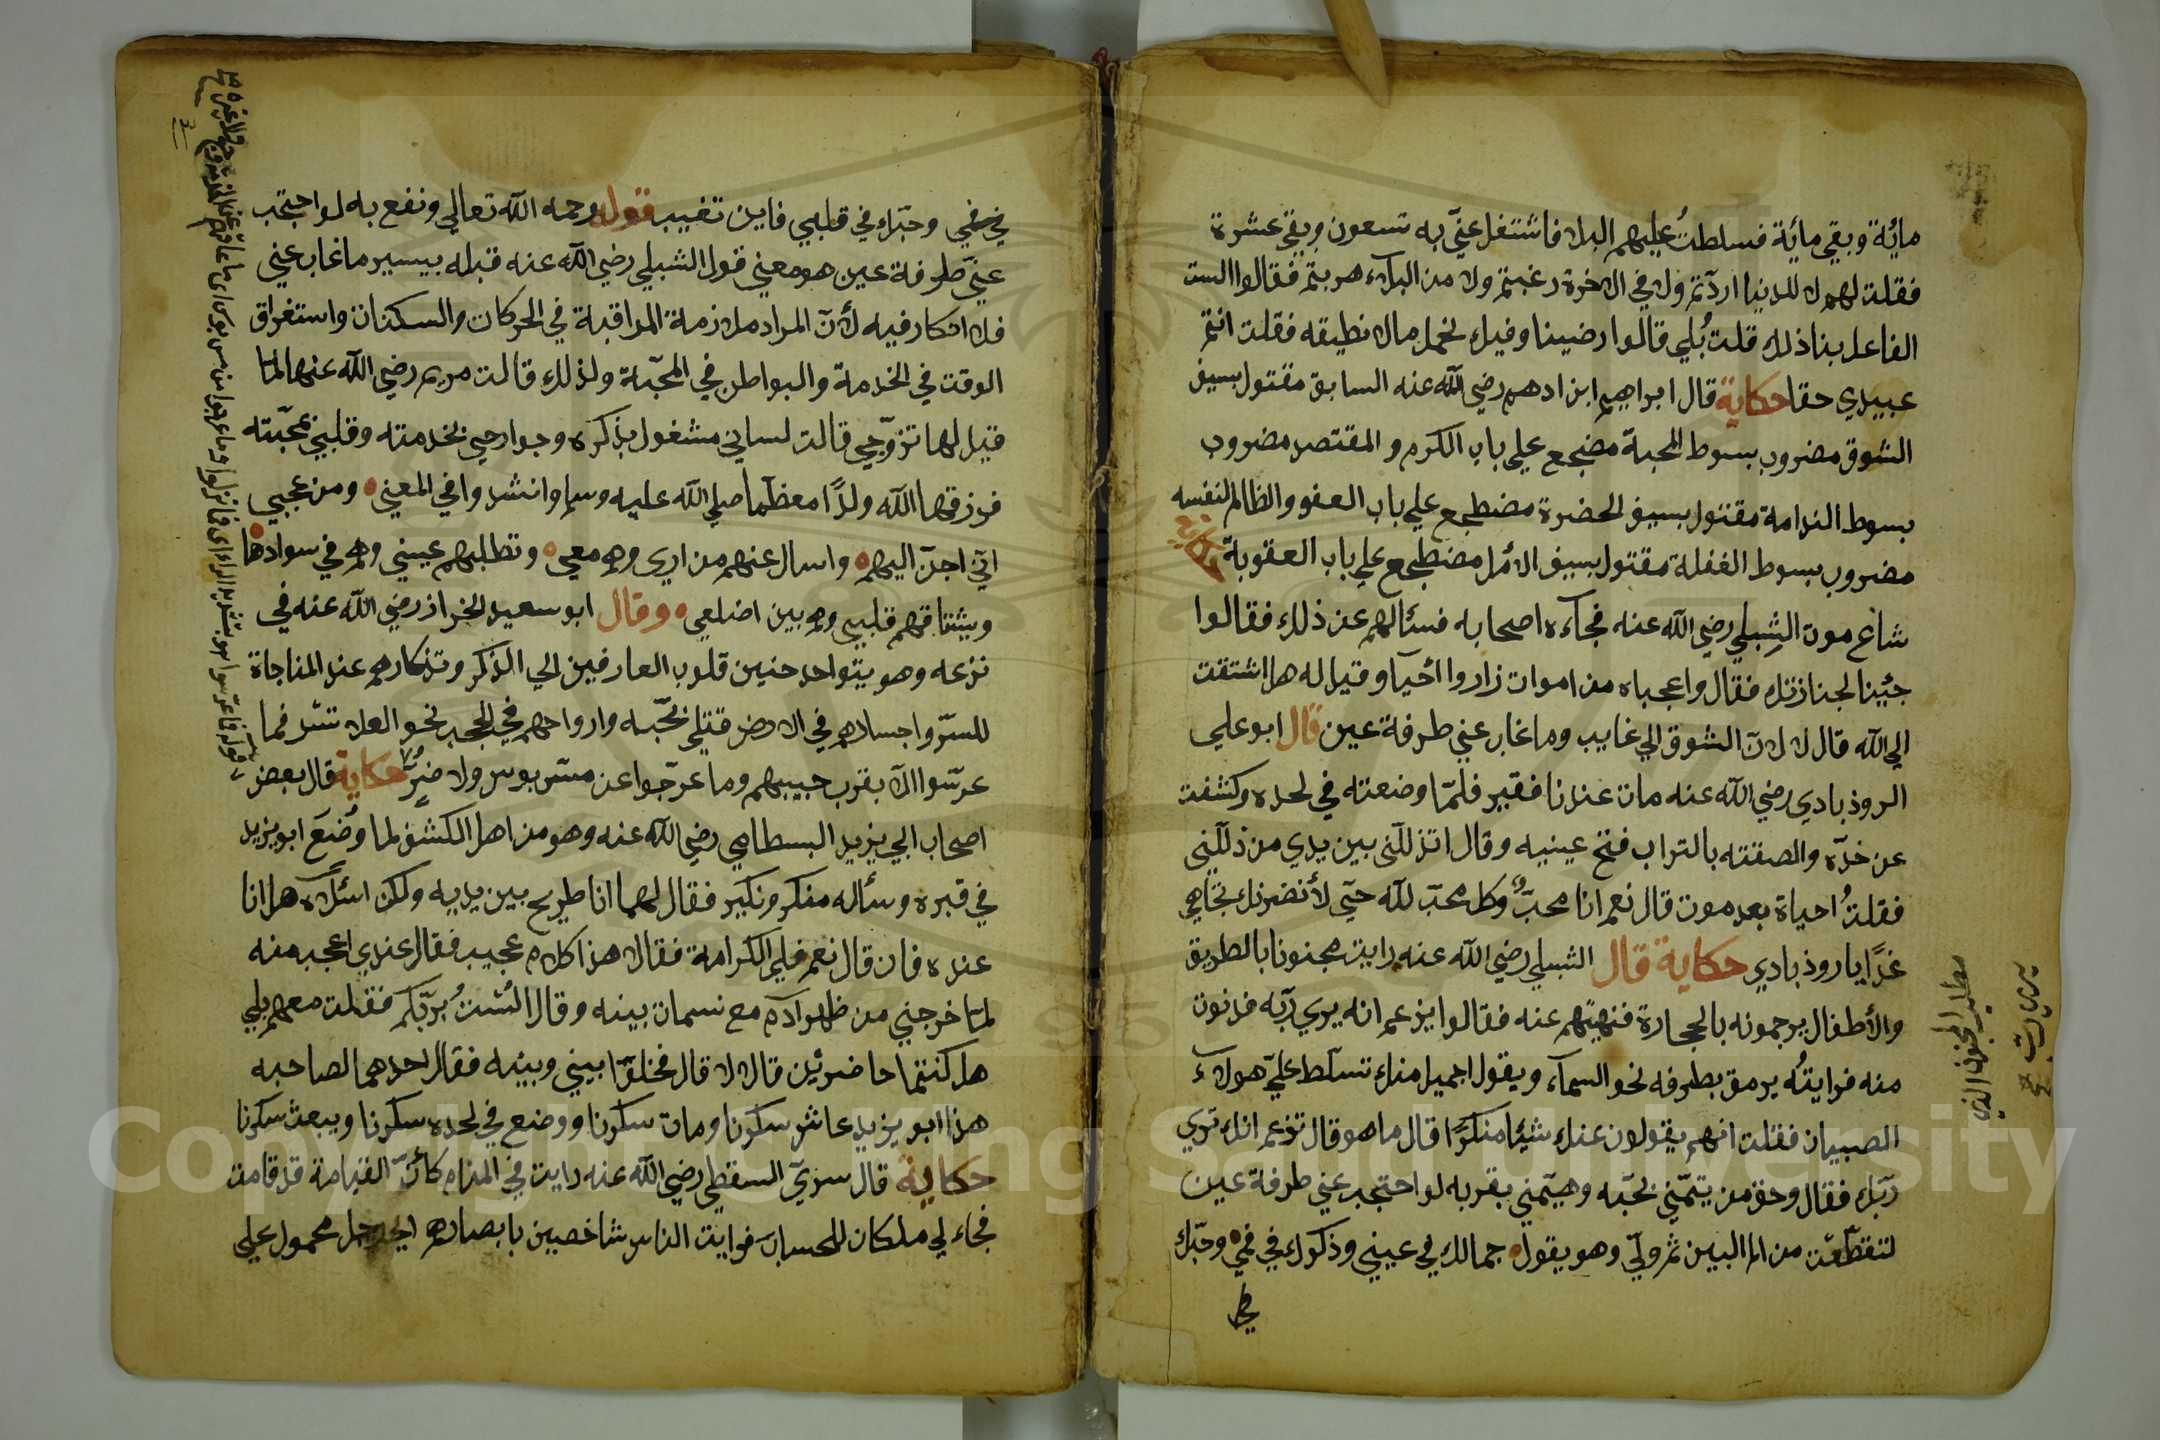 مائة وبقي مائة فسلطتُ عليهم البلا فاشتغل عنّي به تسعون وبقي عشرة
فقلت لهم لا للدنيا اردتم ولا في الاخرة رغبتم ولا من البلاء هربتم فقالوا الست
الفاعل بنا ذلك قلت بُلي قالوا رضينا وفيك نحمل مالا نطيقه فقلت انتم
عبيدي حقا حكاية قال ابراهيم ابن ادهم رضي الله عنه السابق مقتول بسيف
الشوق مضروب بسوط المحبة مضجع علي باب الكرم و المقتصد مضروب
بسوط الندامة مقتول بسيف الحضرة مضطجع علي باب العفو والظالم لنفسه
مضروب بسوط الغفلة مقتول بسيف الأمل مضطجع علي باب العقوبة حكاية
شاع موت الشبلي رضي الله عنه فجآءه اصحابه فسئالهم عن ذلك فقالوا
جئينا لجنازتك فقال واعجباه من اموات زاروا أحيا وقيل له هل اشتقت
الي الله قال لا لان الشوق الي غايب وما غاب عني طرفة عين قال ابو علي
الروذبادي رضي الله عنه مات عندنا فقير فلمّا وضعته في لحده وكشفت
عن خدّه والصقته بالتراب فتح عينيه وقال اتذللّنى بين يدي من ذللّنى
فقلتُ احياة بعد موت قال نعم انا محبّ وكل محب لله حيّ لأنضرنك بجاهي
غدًا يا روذبادي حكاية قال الشبلي رضي الله عنه رايت مجنونا بالطريق
والأطفال يرجمونه بالحجارة فنهيتهم عنه فقالوا يزعم انه يري ربّه فدنوت
منه فرايتُه يرمق بطرفه نحو السمآء ويقول اجميل منك تسلّط عليّ هولآء
الصبيان فقلت انهم يقولون عنك شيئا منكرًا قال ما هو قال تزعم انك تري
ربّك فقال وحق من يتمّني بحبّه وهيّمني بقربه لو احتجب عني طرفة عين
لتقطّعت من الم البين ثم وليّ وهو يقول جمالك في عيني وذكرك في فمي وحبّك
مطلب المجنون الذي
يري ربه
في فمي وحبّك في قلبي فاين تغيب قوله رحمه الله تعالي ونفع به لو احتجب
عنّي طرفة عين هو معني قول الشبلي رضي الله عنه قبله بيسير ما غاب عني
فلا انكار فيه لأنّ المراد ملازمة المراقبة في الحركات والسكنات واستغراق
الوقت في الخدمة والبواطن في المحبّة ولذلك قالت مريم رضي الله عنها لمّا
قيل لها تزوّجي قالت لساني مشغول بذكره وجوارحي بخدمته وقلبي بمحبّته
فرزقها الله ولدًا معظّما صلي الله عليه وسلم وانشدوا في المعني ومن عجبي
انّي احنّ اليهم واسال عنهم من اري وهم معي وتطلبهم عيني وهم في سوادها
ويشتاقهم قلبي وهم بين اضلعي وقال ابو سعيد الخراز رضي الله عنه في
نزعه وهو يتواجد حنين قلوب العارفين الي الذكر وتذكارهم عند المناجاة
للسرّ واجسادهم في الارض قتلي بحبّه وارواحهم في الحجب نحو العلا تسْر فما
عرّسوا الّا بقرب حبيبهم وما عرّجوا عن مسّ بوس ولا ضرٍّ حكاية قال بعض
اصحاب ابي يزيد البسطامي رضي الله عنه وهو من اهل الكشف لما وُضعَ ابو يزيد
في قبره وسأله منكر ونكير فقال لهما انا طريح بين يديه ولكن اسئلاه هل انا
عنده فان قال نعم فلي الكرامة فقالا هذا كلام عجيب فقال عندي اعجب منه
لمّا خرجني من ظهر آدم مع نسمات بينه وقال الَسْتُ بربّكم فقلت معهم بلي
هل كنتما حاضرئين قالا لا قال فخلّوا بيني وبينه فقال احدهما لصاحبه
هذا ابو يزيد عاش سكرنا ومات سكرنا ووضع في لحده سكرنا ويبعث سكرنا
حكاية قال سريّ السقطي رضي الله عنه رايت في المنام كأنّ القيامة قد قامت
فجاء لي ملكان للحساب فرايت الناس شاخصين بابصارهم الي رجل محمول علي
Copyright © King Saud University